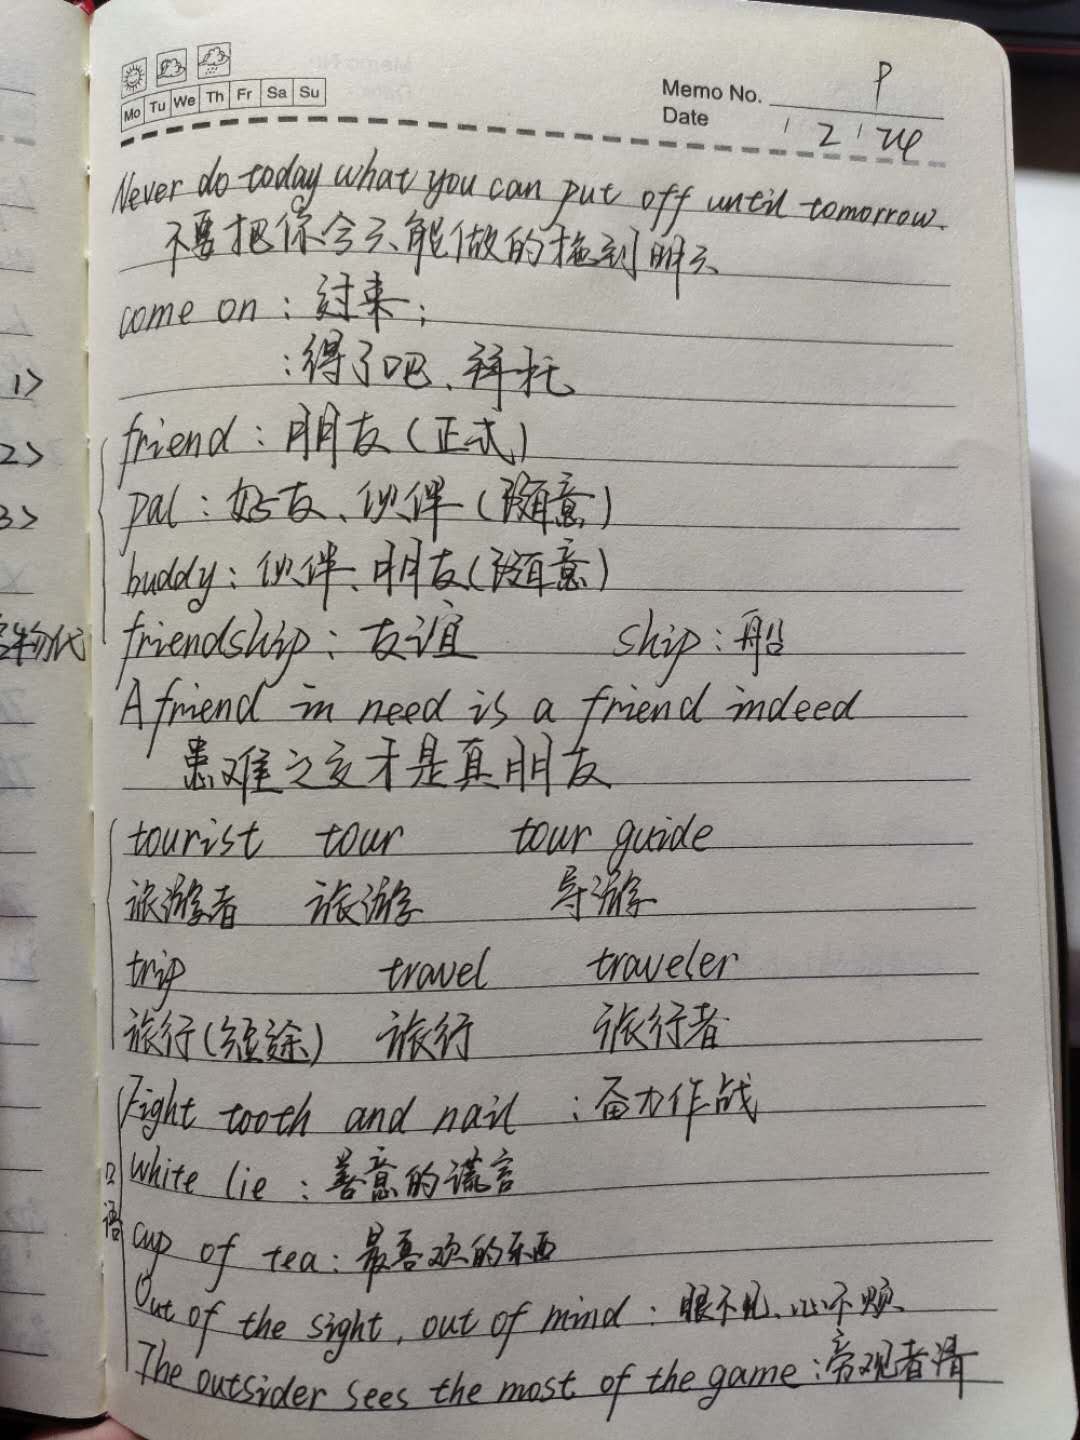 Mo Tu We Th Fr Sa Su
Memo No. P
Date 1 2 24
Never do today what you can put off until tomorrow.
不要把你今天能做的拖到明天
come on : 过来;
:得了吧、拜托
1>
friend : 朋友 (正式)
2>
pal : 好友、伙伴 (随意)
3>
buddy : 伙伴、朋友 (随意)
物代
friendship : 友谊 ship : 船
A friend in need is a friend indeed
患难之交才是真朋友
tourist tour tour guide
旅游者 旅游 导游
trip travel traveler
旅行(短途) 旅行 旅行者
Fight tooth and nail : 奋力作战
口语
White lie : 善意的谎言
Cup of tea : 最喜欢的东西
Out of the sight, out of mind : 眼不见、心不烦
The outsider sees the most of the game : 旁观者清